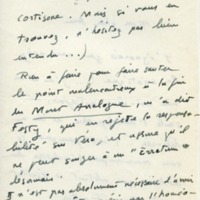 cortisone. Mais si vous en
trouvez, n'hésitez pas bien
entendu...)
Rien à faire pour faire sauter
le point malencontreux à la fin
du Mont Analogue, m'a dit
Festy, qui en rejette la responsa-
bilité sur Véra, et assure qu'il
ne peut songer à un "Erratum"
désormais.
Il n'est pas absolument nécessaire d'avoir